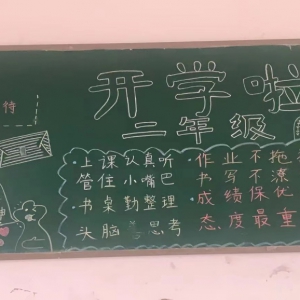 开学啦
二年级
·上课认真听
管住小嘴巴
·书桌勤整理
头脑 思考
·作业不拖
书写不潦
·成绩保优
态度最重